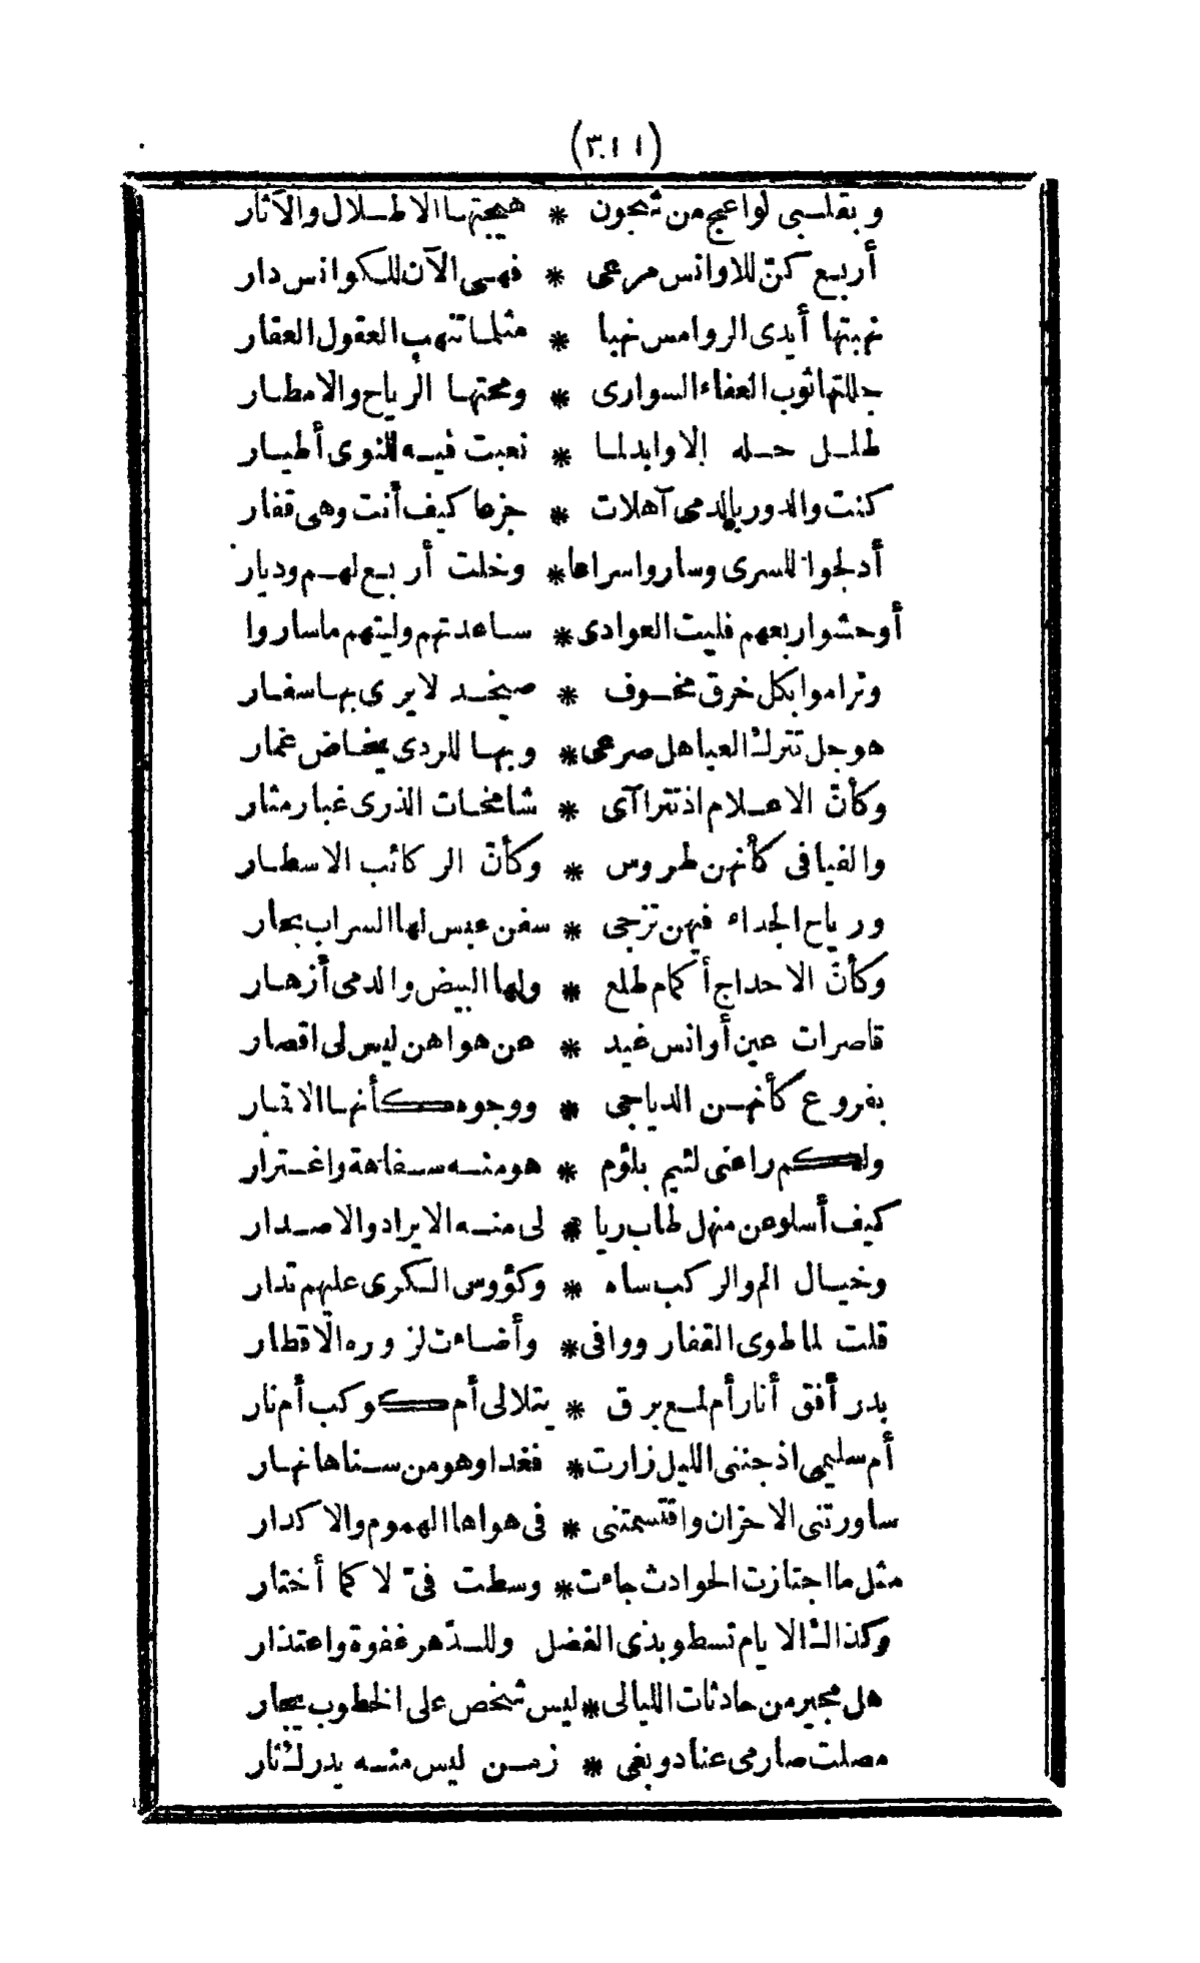 (٣٠١١)
وبقلبى لواعج من شجون * هيجتها الاطلال والآثار
أربع كنّ للاوانس مرعى * فهى الآن للكوانس دار
نهبتها أيدى الروامس نهبا * مثلما تنهب العقول العقار
جللتها ثوب العفاء السوارى * ومحتها الرياح والامطار
طلل حله الاوابد لما * نعبت فيه للنوى أطيار
كنت والدور بالدمى آهلات * جزعا كيف أنت وهى قفار
أدلجوا للسرى وساروا سراعا * وخلت أربع لهم وديار
أوحشوا ربعهم فليت العوادى * ساعدتهم وليتهم ما ساروا
وتراموا بكل خرق مخوف * صيخد لا يرى بها سفار
هوجل تترك العياهل صرعى * وبها للردى يخاض غمار
وكأنّ الاعلام اذ تترا آى * شامخات الذرى غبار مثار
والفيافى كأنهن طروس * وكأنّ الركائب الاسطار
ورياح الجداء فيهن تزجى * سفن عيس لها السراب بحار
وكأنّ الاحداج أكمام طلع * ولها البيض والدمى أزهار
قاصرات عين أوانس غيد * عن هواهن ليس لى اقصار
بفروع كأنهن الدياجى * ووجوه كأنها الاقمار
ولكم راعنى لئيم بلؤم * هو منه سفاهة واغترار
كيف أسلو عن منهل طاب ريا * لى منه الايراد والاصدار
وخيال الم والركب ساه * وكؤوس الكرى عليهم تدار
قلت لما طوى القفار ووافى * وأضاءت لزوره الاقطار
بدر أفق أنار أم لمع برق * يتلالى أم كوكب أم نار
أم سليمى اذ جننى الليل زارت * فغدا وهو من سناها نهار
ساورتنى الاحزان واقتسمتنى * فى هواها الهموم والاكدار
مثل ما اجتازت الحوادث جاءت * وسطت فىّ لا كما أختار
وكذاك الايام تسطو بذى الفضل وللدّهر غفوة واعتذار
هل مجير من حادثات الليالى * ليس شخص على الخطوب يجار
مصلت صارمى عناد وبغى * زمن ليس منه يدرك ثار